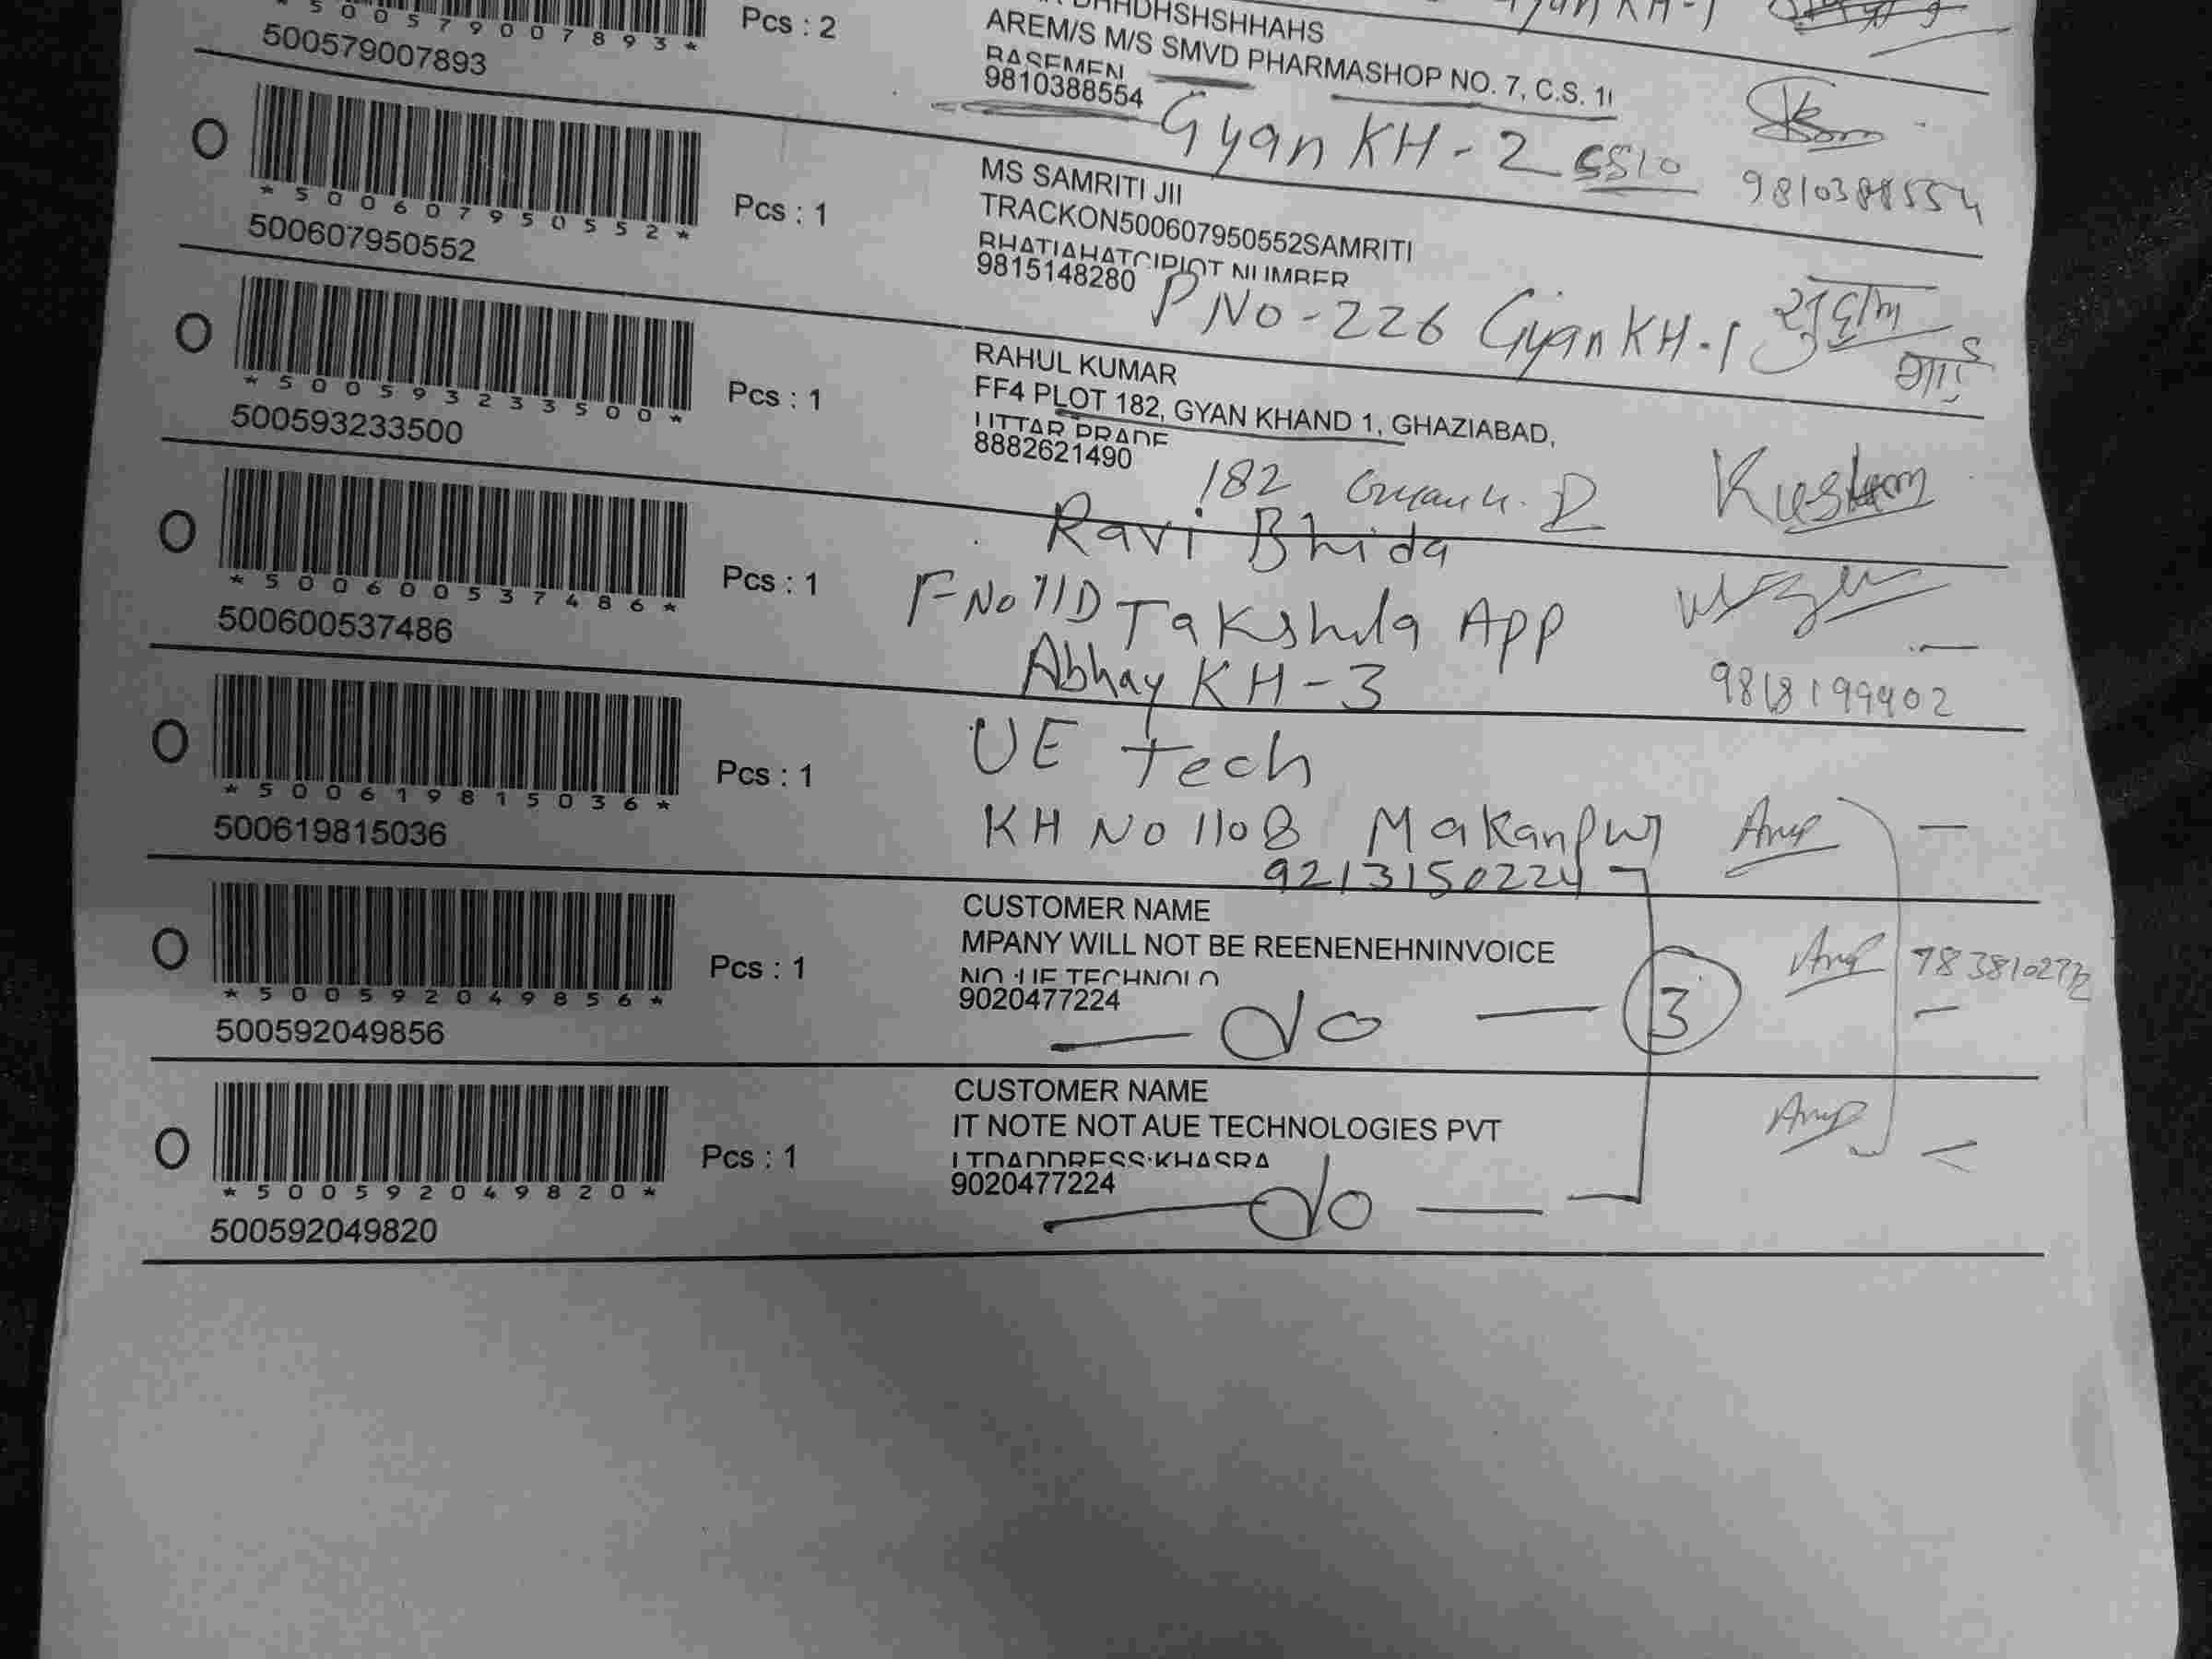 *500579007893*
500579007893
Pcs : 2
DHHDHSHSHHAHS
AREM/S M/S SMVD PHARMASHOP NO. 7, C.S. 1
BASEMEN
9810388554
Gyan KH-1
Gyan KH-2 CS10
9810388554
*500607950552*
500607950552
Pcs : 1
MS SAMRITI JII
TRACKON500607950552SAMRITI
BHATIAHATCIPLOT NUMBER
9815148280
P No-226 Gyan KH-1
*500593233500*
500593233500
Pcs : 1
RAHUL KUMAR
FF4 PLOT 182, GYAN KHAND 1, GHAZIABAD,
UTTAR PRADE
8882621490
182
*500600537486*
500600537486
Pcs : 1
Ravi Bhida
F-No 11D Takshila App
Abhay KH-3
*500619815036*
500619815036
Pcs : 1
UE Tech
KH No 1108 Makanpur
9213150224
*500592049856*
500592049856
Pcs : 1
CUSTOMER NAME
MPANY WILL NOT BE REENENEHNINVOICE
NO :UE TECHNOLO
9020477224
— do —
3
*500592049820*
500592049820
Pcs : 1
CUSTOMER NAME
IT NOTE NOT AUE TECHNOLOGIES PVT
LTDADDRESS:KHASRA
9020477224
— do —